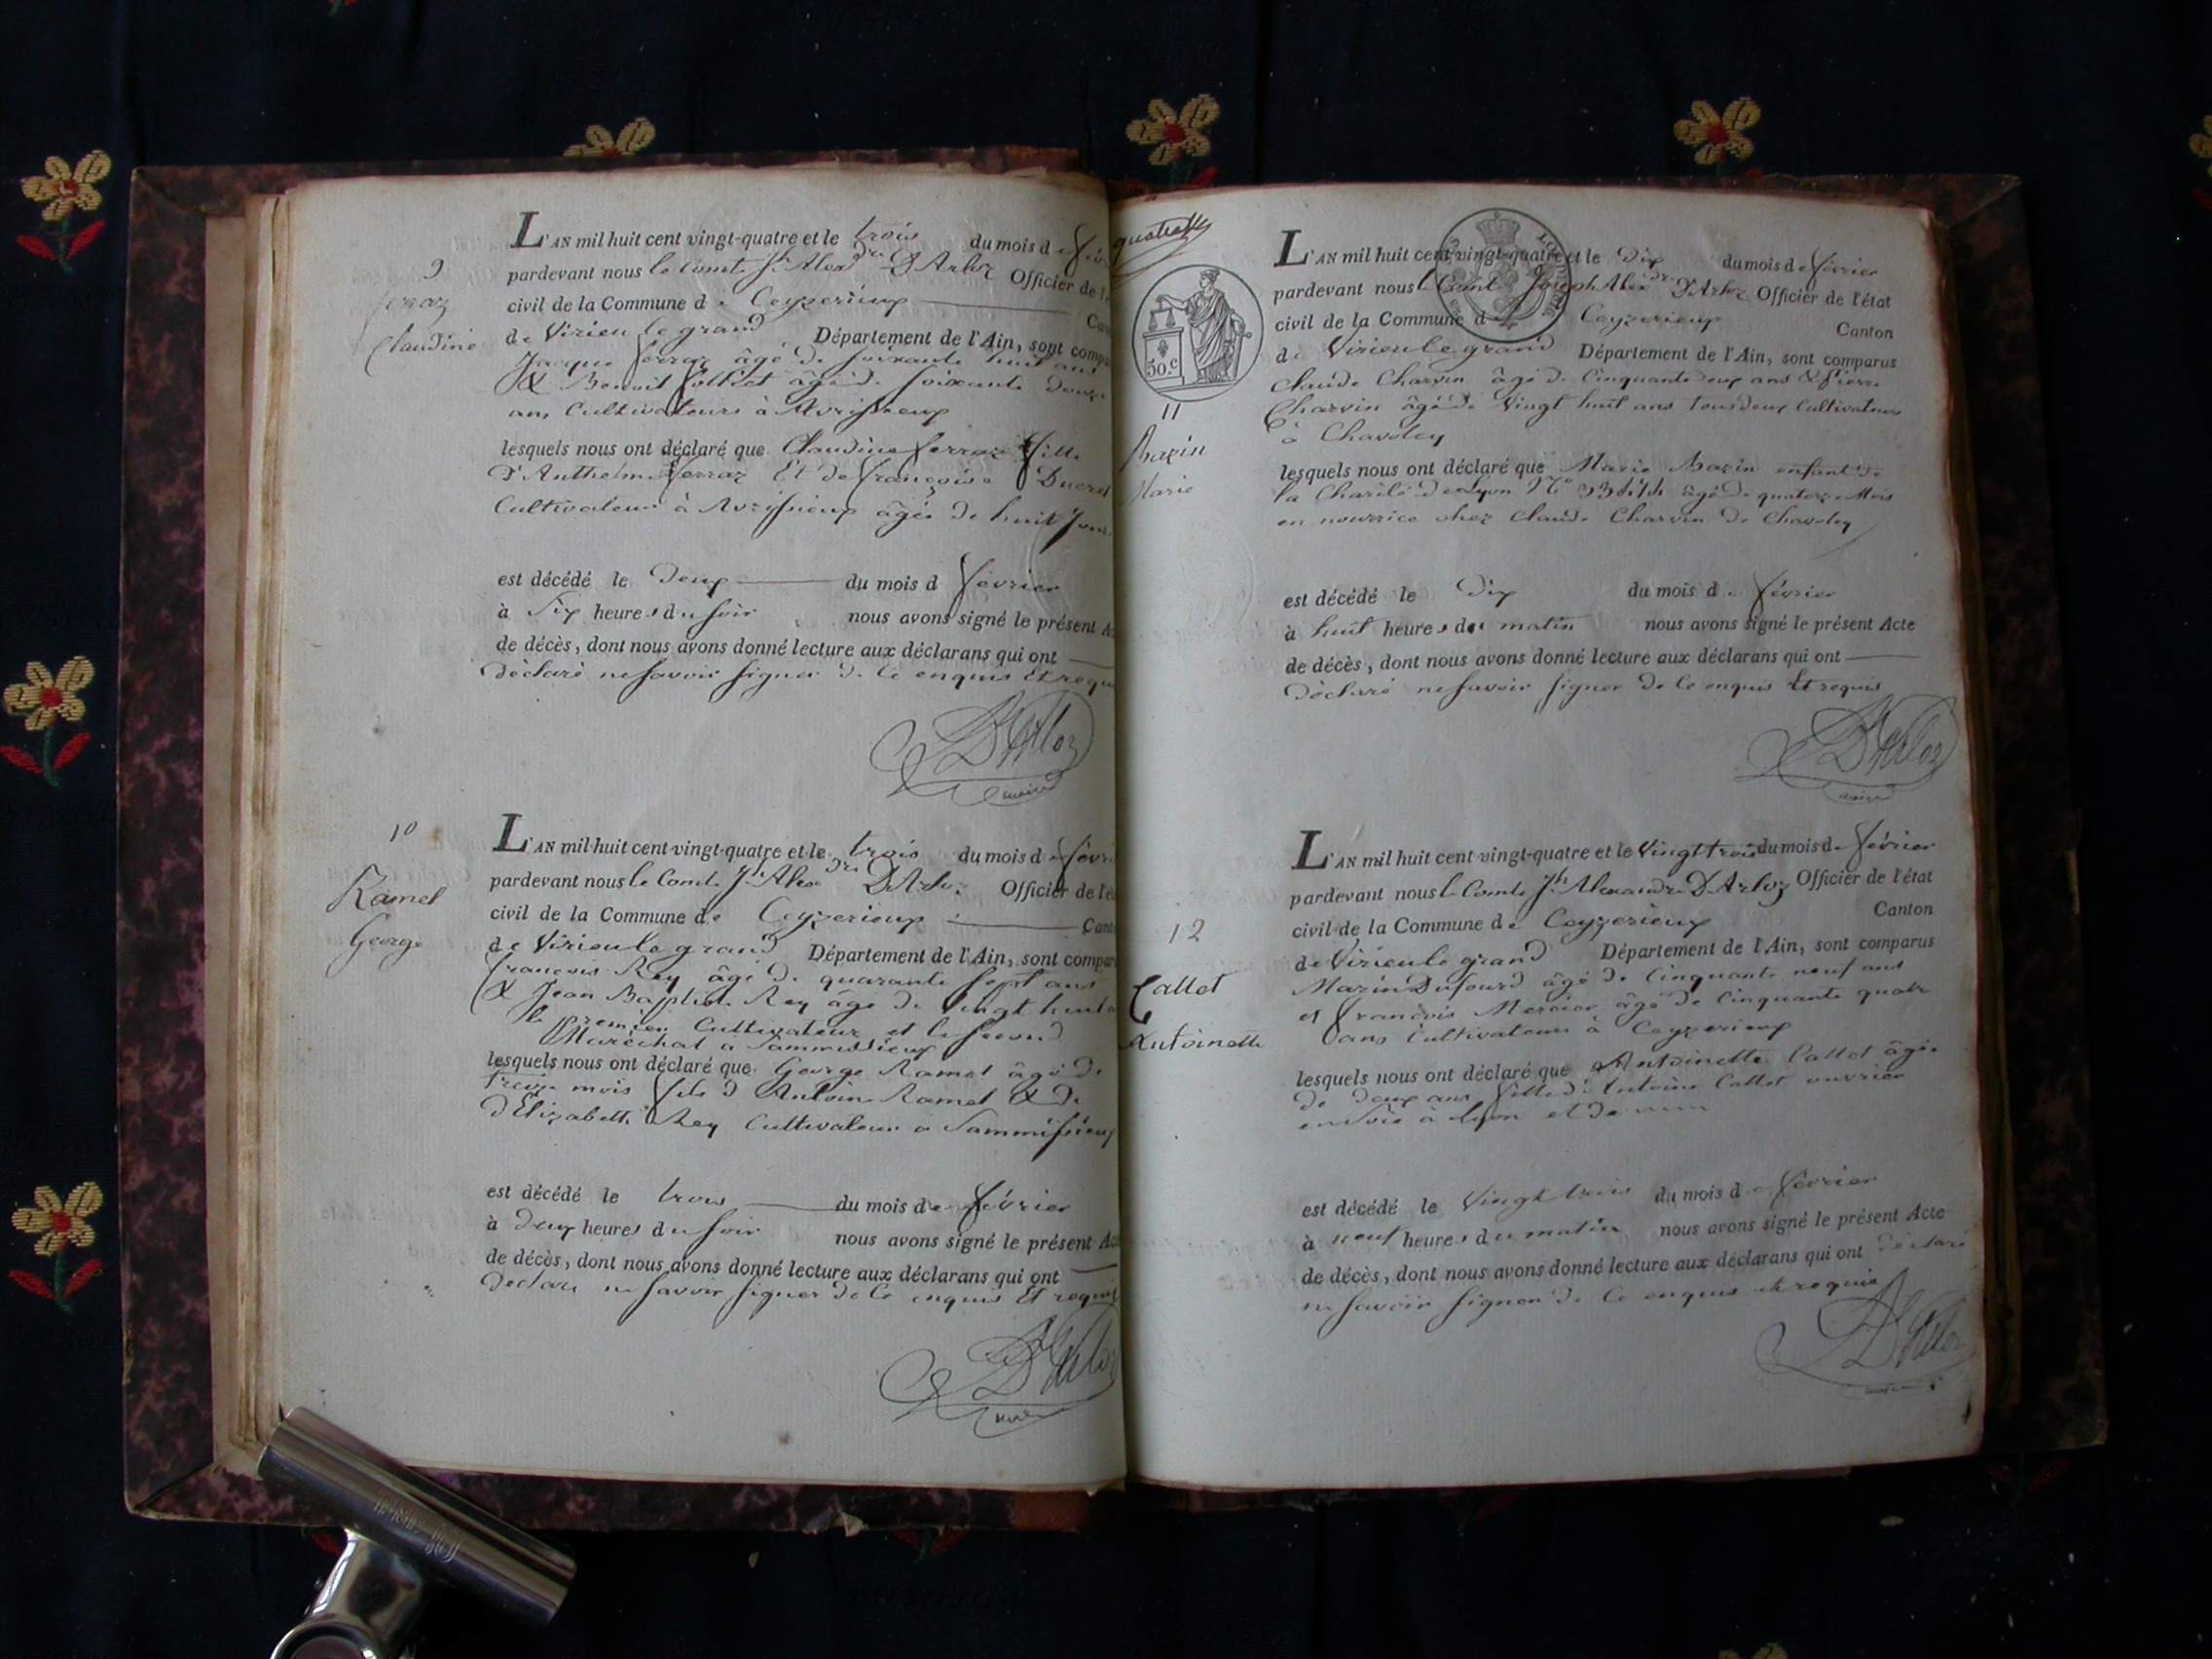 9
ferraz
Claudine
L'AN mil huit cent vingt-quatre et le trois du mois de fév
pardevant nous le comte Jh Alexdre D'Arloz Officier de l'é
civil de la Commune de Ceyzerieux Ca
de Virieu le grand Département de l'Ain, sont compa
Jacque ferraz âgé de soixante huit ans
& Benoit âgé de soixante douze
ans Cultivateurs à Avrissieux
lesquels nous ont déclaré que Claudine ferraz fille
d'Anthelme ferraz Et de françoise Ducret
Cultivateur à Avrissieux âgée de huit Jours
est décédé le deux du mois d février
à Six heures du soir nous avons signé le présent A
de décès, dont nous avons donné lecture aux déclarans qui ont
déclaré ne savoir signer de ce enquis Et requis
D'Arloz
maire
10
Ramel
George
L'AN mil huit cent vingt-quatre et le trois du mois de févri
pardevant nous le Comte Jh Alexdre D'Arloz Officier de l'é
civil de la Commune de Ceyzerieux Cant
de Virieu le grand Département de l'Ain, sont compar
françois Rey âgé de quarante sept ans
& Jean Baptiste Rey âgé de vingt huit a
le premier Cultivateur et le second
Maréchal a Sammissieux
lesquels nous ont déclaré que George Ramel âgé de
treize mois fils d Antoine Ramel & de
d'Elizabeth Rey Cultivateur a Sammissieux
est décédé le trois du mois de février
à deux heures du soir nous avons signé le présent Ac
de décès, dont nous avons donné lecture aux déclarans qui ont
déclaré ne savoir signer de ce enquis Et requis
D'Arloz
maire
50.c
11
Bazin
Marie
L'AN mil huit cent vingt-quatre et le dix du mois de février
pardevant nous le Comte Joseph Alexdre D'Arloz Officier de l'état
civil de la Commune de Ceyzerieux Canton
de Virieu le grand Département de l'Ain, sont comparus
Claude Charvin âgé de Cinquante deux ans & pierre
Charvin âgé de Vingt huit ans tous deux Cultivateurs
à Chavoley
lesquels nous ont déclaré que Marie Bazin enfant de
la Charité de Lyon âgé de quatorze Mois
en nourrice chez Claude Charvin de Chavoley
est décédé le dix du mois de février
à huit heures du matin nous avons signé le présent Acte
de décès, dont nous avons donné lecture aux déclarans qui ont
déclaré ne savoir signer de ce enquis Et requis
D'Arloz
maire
12
Callet
Antoinette
L'AN mil huit cent vingt-quatre et le Vingt trois du mois de février
pardevant nous le Comte Jh Alexandre D'Arloz Officier de l'état
civil de la Commune de Ceyzerieux Canton
de Virieu le grand Département de l'Ain, sont comparus
Marin Dufourd âgé de Cinquante neuf ans
et françois Mercier âgé de Cinquante quatre
ans Cultivateurs à Ceyzerieux
lesquels nous ont déclaré que Antoinette Callet âgée
de deux ans fille d'Antoine Callet ouvrier
en soie à Lyon et de
est décédé le Vingt trois du mois de février
à neuf heures du matin nous avons signé le présent Acte
de décès, dont nous avons donné lecture aux déclarans qui ont déclaré
ne savoir signer de ce enquis et requis
D'Arloz